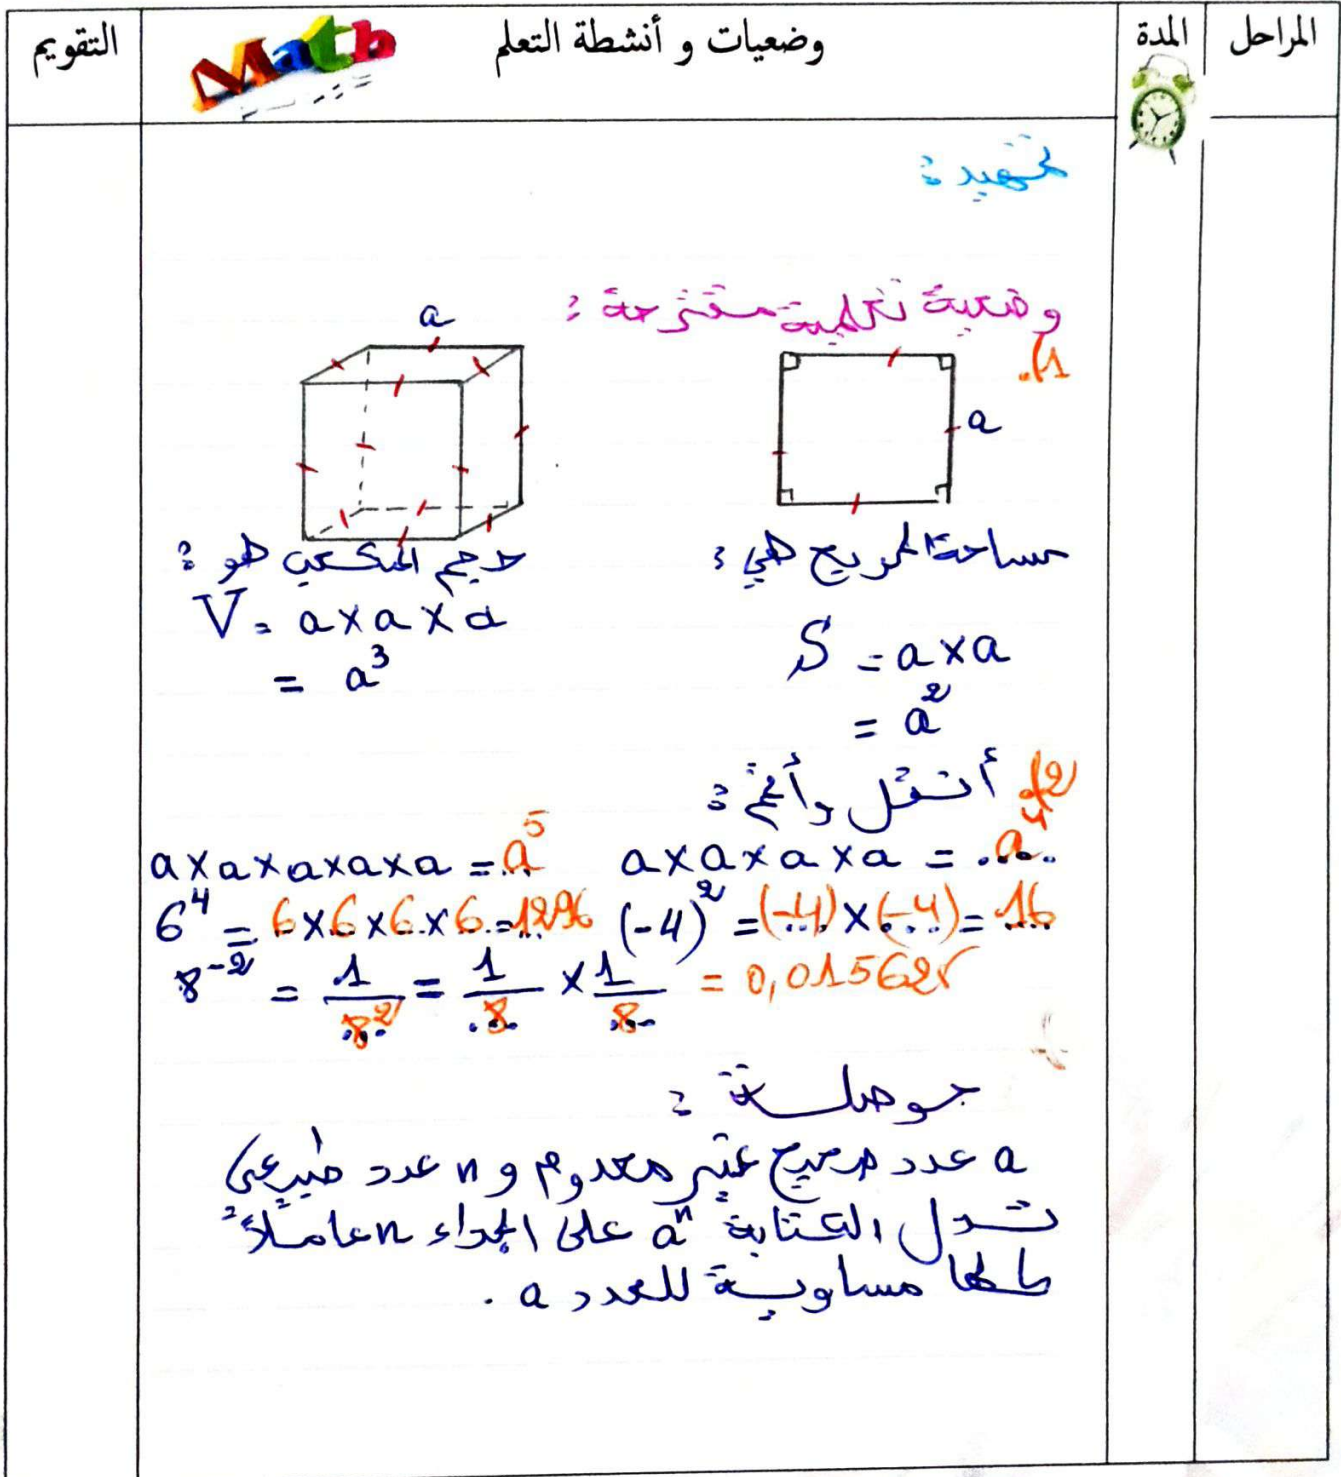 المراحل
المدة
وضعيات و أنشطة التعلم
Math
التقويم
تمهيد :
وضعية تعلمية مقترحة :
1).
a
a
مساحة المربع هي :
S = a×a
= a²
حجم المكعب هو :
V = a×a×a
= a³
2) أنقل وأتمم :
a×a×a×a = .a⁴.
a×a×a×a×a = a⁵
(-4)² = (-4)×(-4) = 16
6⁴ = 6×6×6×6 = 1296
8⁻² = 1/8² = 1/8 × 1/8 = 0,015625
حوصلة :
a عدد صحيح غير معدوم و n عدد طبيعي
تدل الكتابة aⁿ على الجداء n عاملاً
كلها مساوية للعدد a .